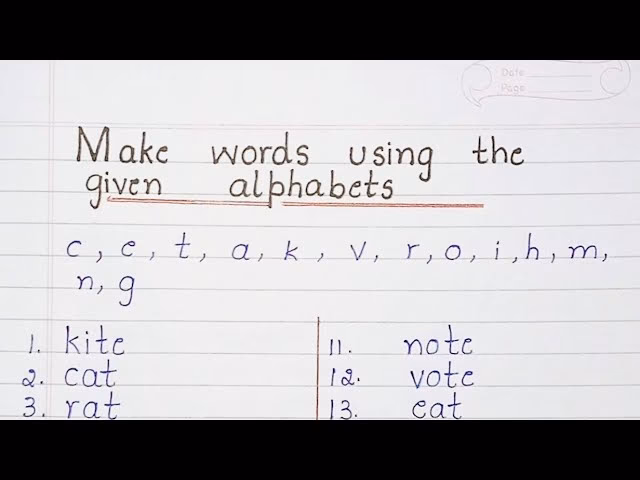 Date
Page
Make words using the
given alphabets
c, e, t, a, k, v, r, o, i, h, m,
n, g
1. kite
2. cat
3. rat
11. note
12. vote
13. eat